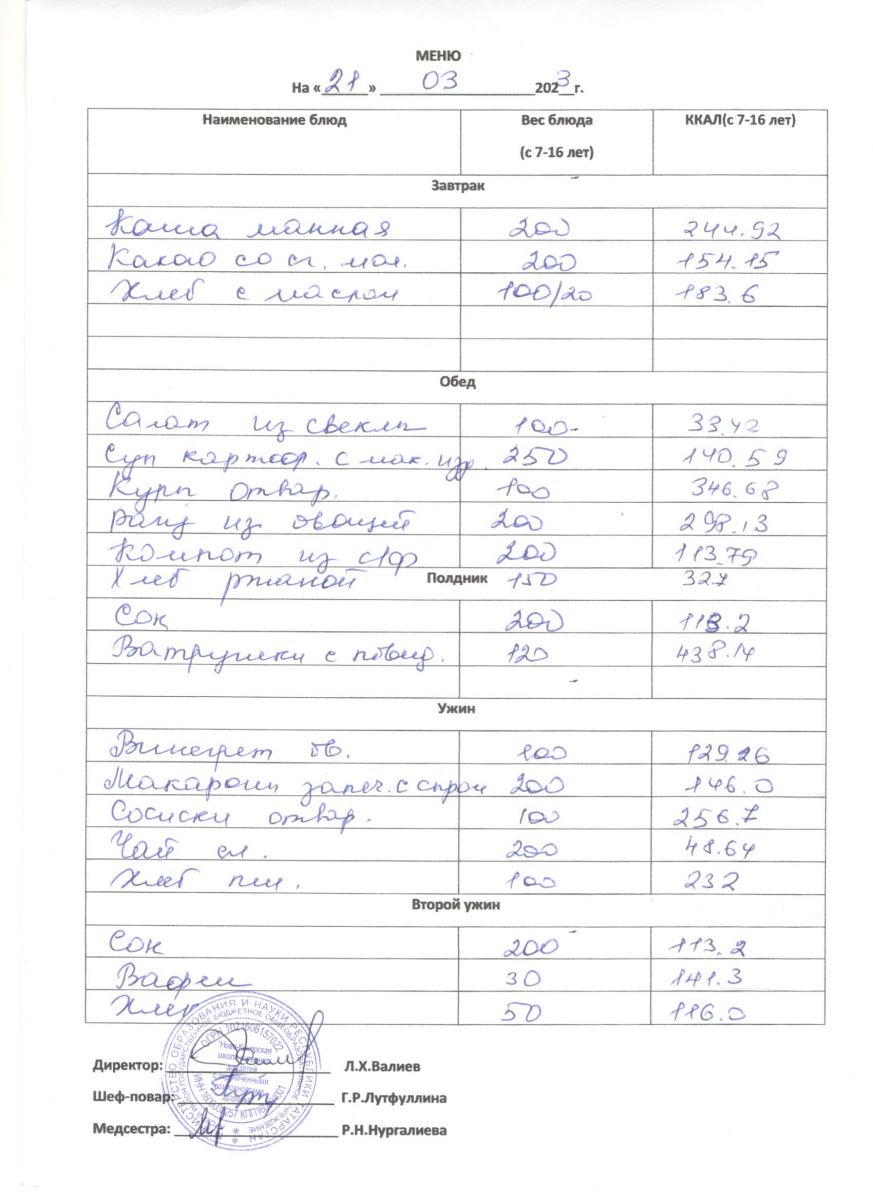 МЕНЮ
На «21» 03 2023 г.
Наименование блюд Вес блюда (с 7-16 лет) ККАЛ(с 7-16 лет)
Завтрак
Каша манная 200 244.92
Какао со сг. мол. 200 154.15
Хлеб с маслом 100/20 183.6
Обед
Салат из свеклы 100 33.42
Суп картоф. с мак. изд. 250 140.59
Куры отвар. 100 346.68
Рагу из овощей 200 298.13
Компот из с/ф 200 113.79
Хлеб ржаной 150 327
Полдник
Сок 200 113.2
Ватрушки с повид. 120 438.14
Ужин
Винегрет ов. 100 129.26
Макароны запеч. с сыром 200 146.0
Сосиски отвар. 100 256.7
Чай сл. 200 48.64
Хлеб пш. 100 232
Второй ужин
Сок 200 113.2
Вафли 30 141.3
Хлеб 50 116.0
Директор: Л.Х.Валиев
Шеф-повар: Г.Р.Лутфуллина
Медсестра: Р.Н.Нургалиева
ОГРН 1021606157022